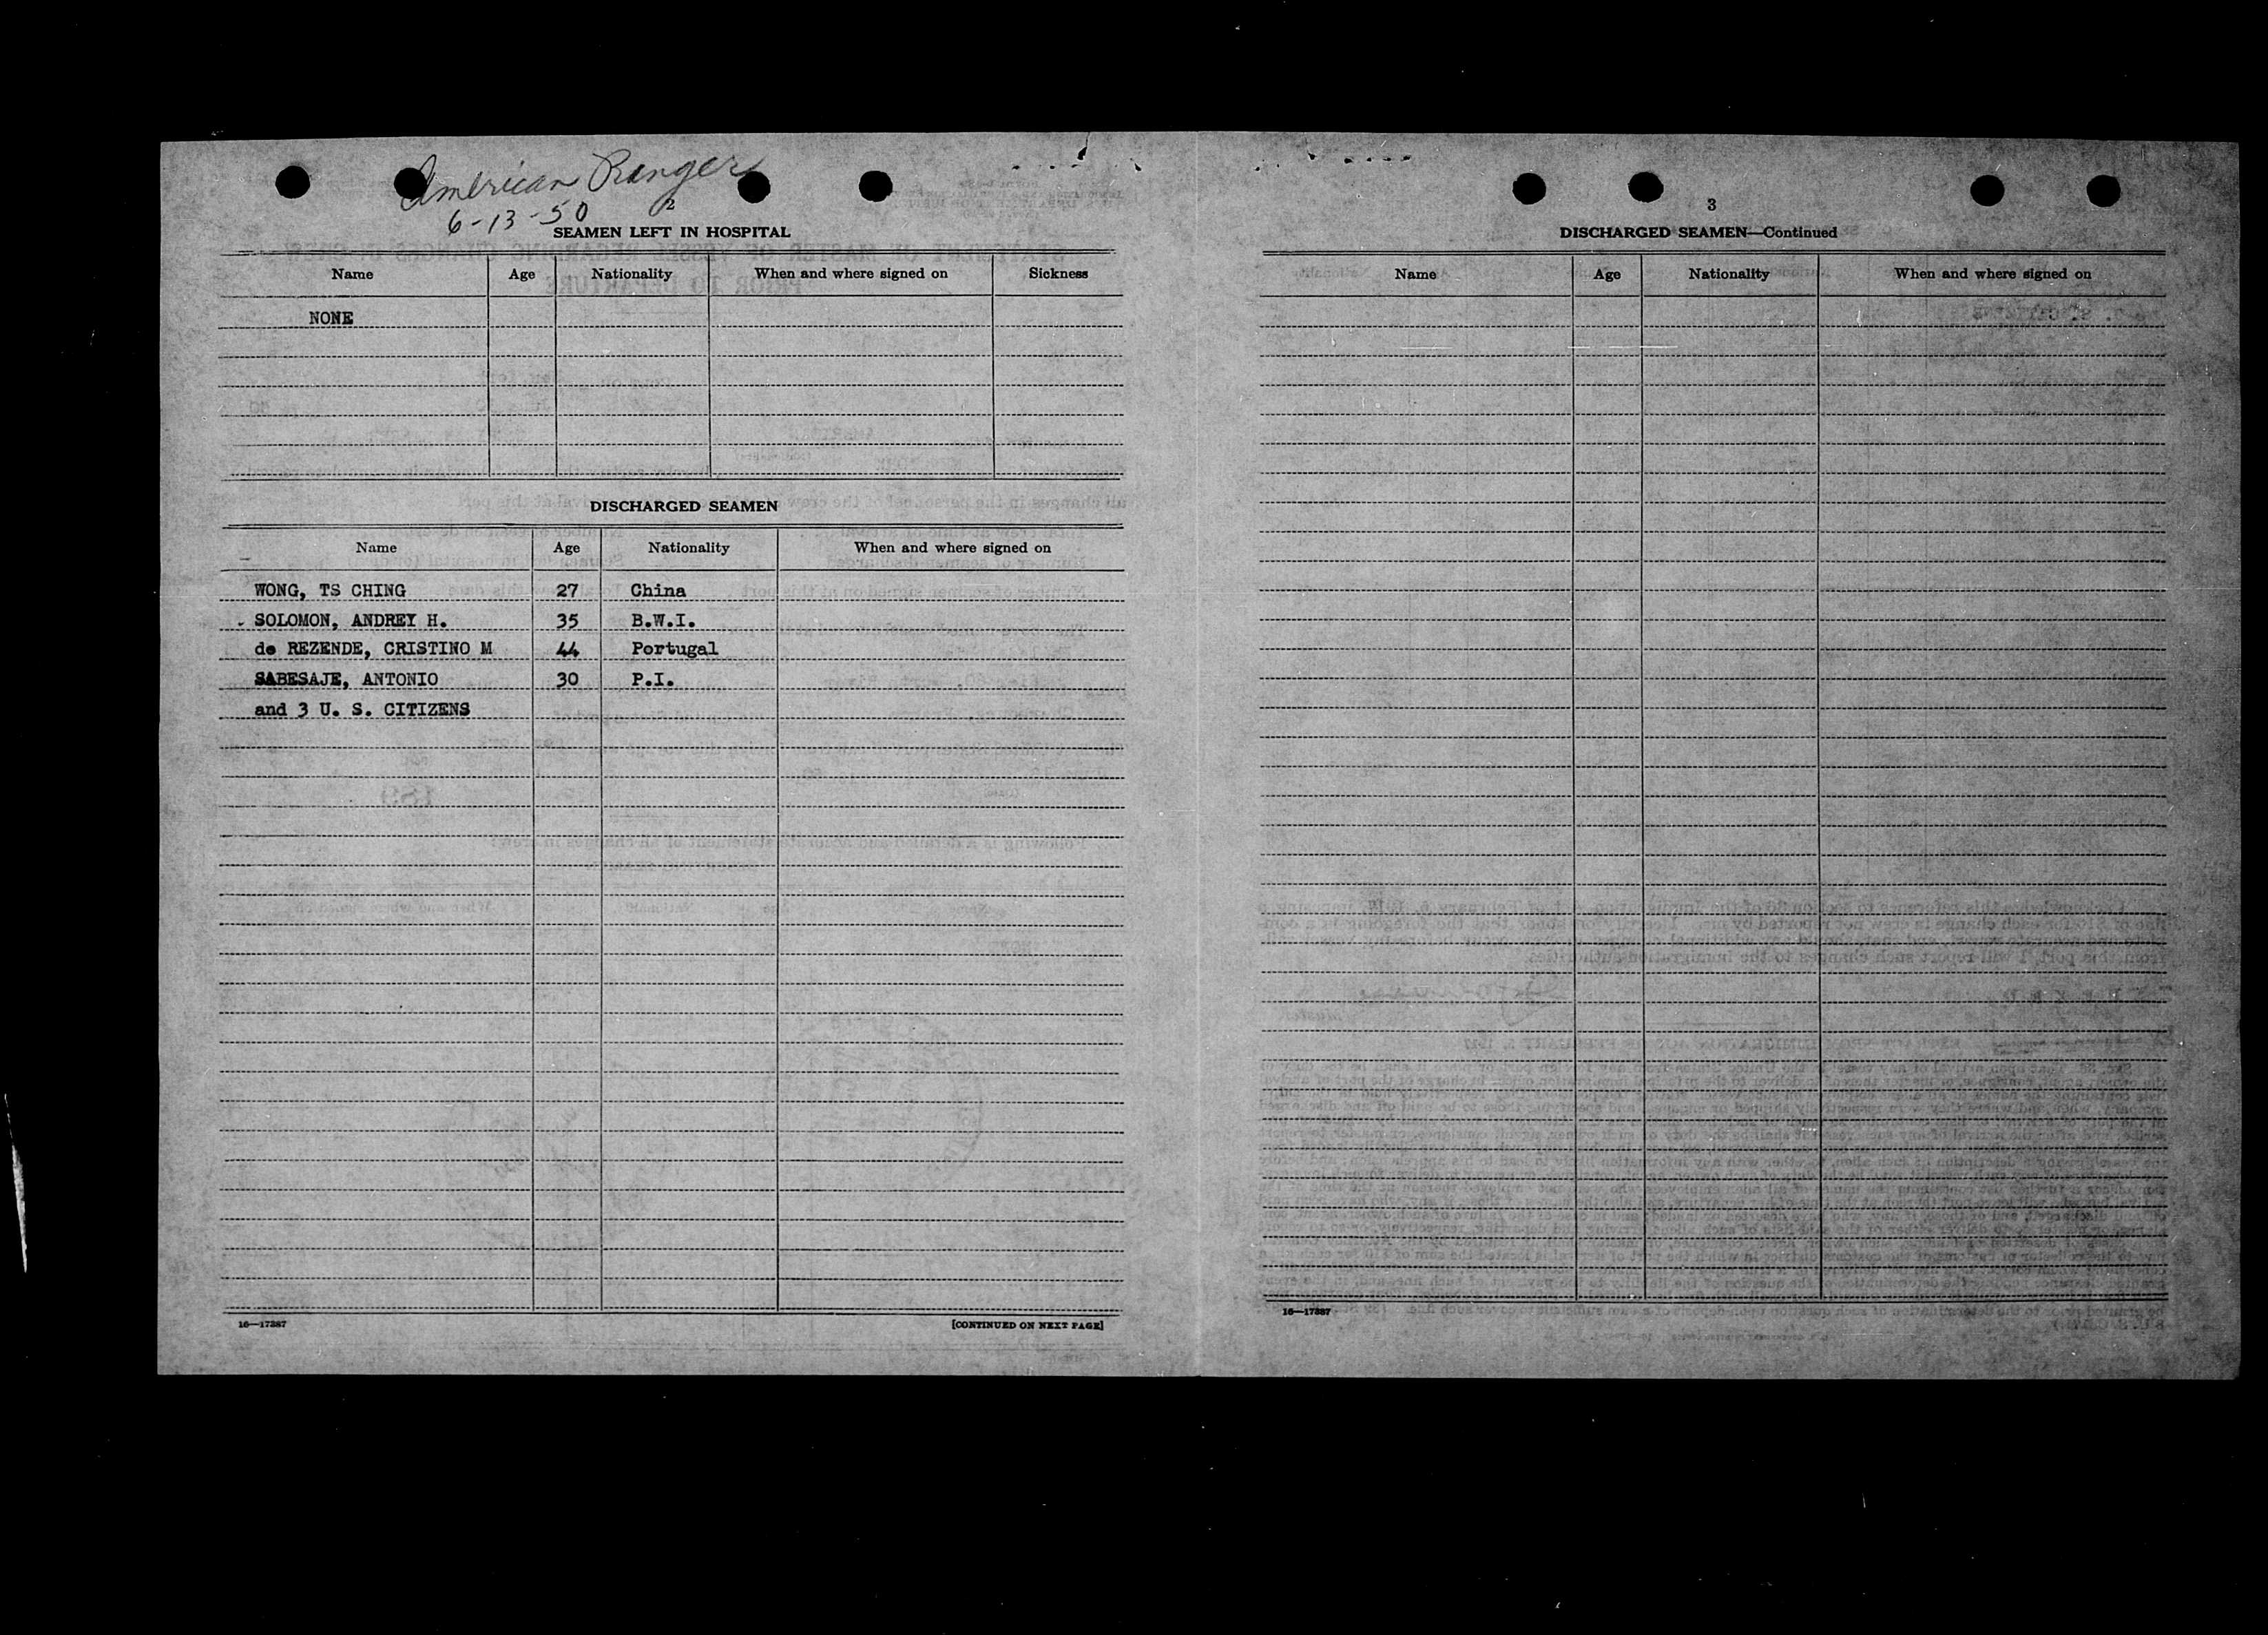 American Ranger
6-13-50
2
SEAMEN LEFT IN HOSPITAL
Name Age Nationality When and where signed on Sickness
NONE
DISCHARGED SEAMEN
Name Age Nationality When and where signed on
WONG, TS CHING 27 China
SOLOMON, ANDREY H. 35 B.W.I.
de REZENDE, CRISTINO M 44 Portugal
SABESAJE, ANTONIO 30 P.I.
and 3 U. S. CITIZENS
16—17387
[CONTINUED ON NEXT PAGE]
3
DISCHARGED SEAMEN—Continued
Name Age Nationality When and where signed on
16—17387